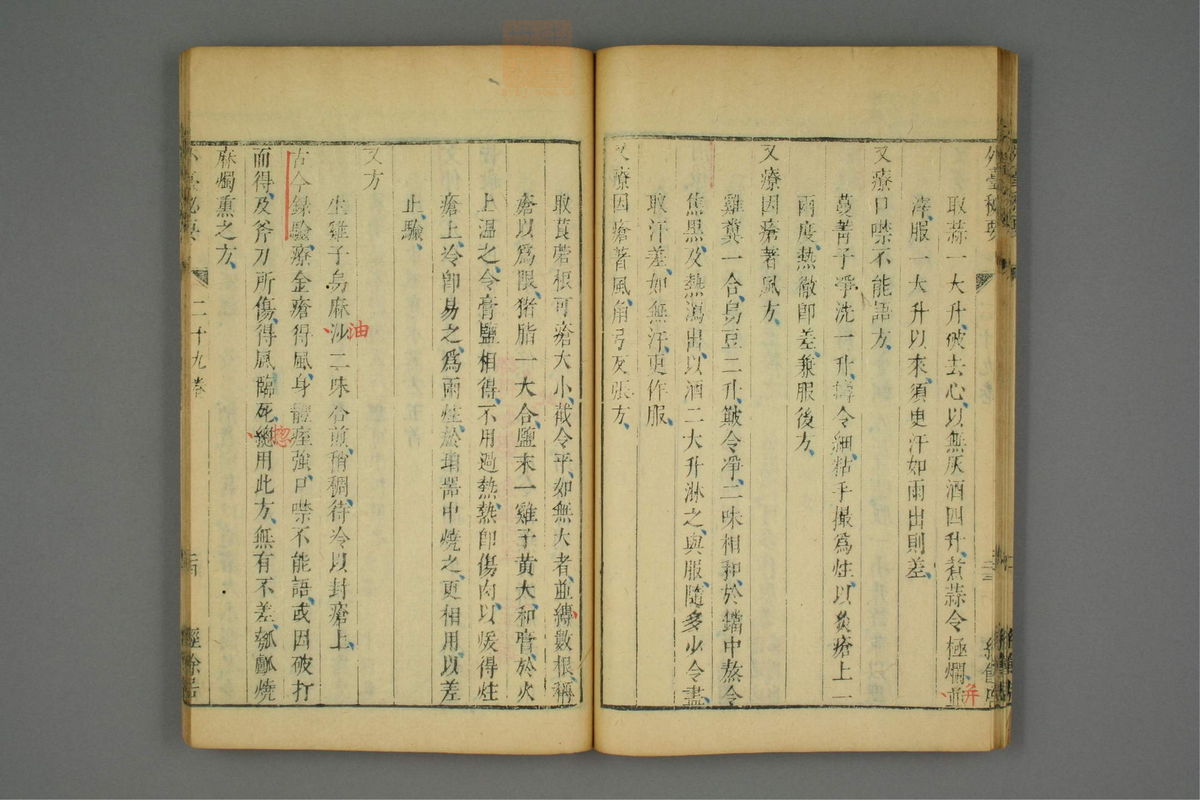 外臺秘要
取蒜一大升破去心以無灰酒四升煮蒜令極爛並
滓服一大升以來須臾汗如雨出則差
又療口噤不能語方
蔓菁子淨洗一升擣令細粘手撮爲炷以炙瘡上一
兩度熱徹卽差兼服後方
又療因瘡著風方
雞糞一合烏豆二升皾令淨二味相和於鐺中熬令
焦黑及熱瀉出以酒二大升淋之與服隨多少令盡
取汗差如無汗更作服
又療因瘡著風角弓反張方
取莨菪根可瘡大小截令平如無大者並縛數根稱
瘡以爲限猪脂一大合鹽末一雞子黃大和膏於火
上溫之令膏鹽相得不用過熱熱卽傷肉以煖得炷
瘡上冷卽易之爲兩炷於坩器中燒之更相用以差
止驗
又方
生雞子烏麻油二味合煎稍稠待冷以封瘡上
古今錄驗療金瘡得風身體痙強口噤不能語或因破打
而得及斧刀所傷得風臨死總用此方無有不差瓠瓤燒
麻燭熏之方
外臺秘要
二十九卷
經餘居